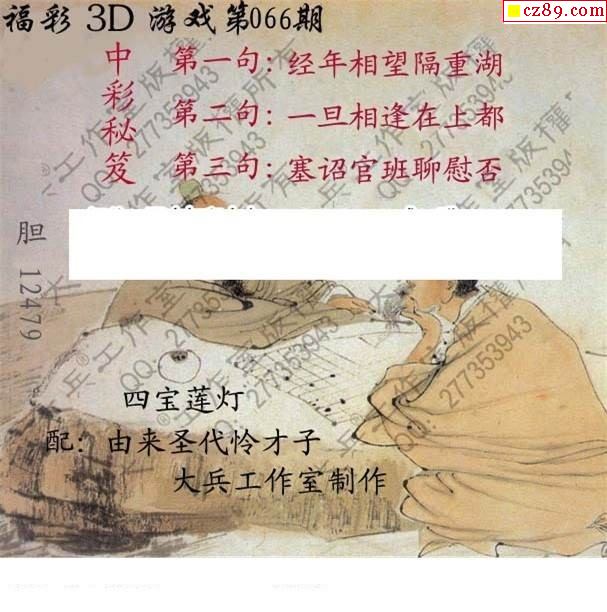 cz89.com
福彩 3D 游戏第066期
中彩秘笈
第一句：经年相望隔重湖
第二句：一旦相逢在上都
第三句：塞诏官班聊慰否
胆 12479
四宝莲灯
配：由来圣代怜才子
大兵工作室制作
大兵®工作室版权所有
QQ：277353943